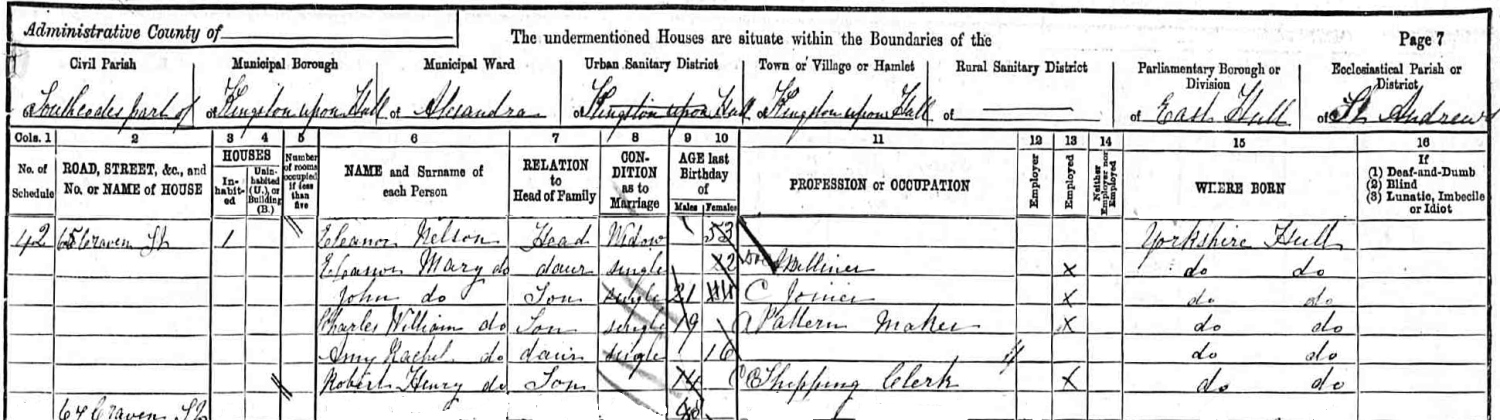 Administrative County of
The undermentioned Houses are situate within the Boundaries of the
Page 7
Civil Parish Municipal Borough Municipal Ward Urban Sanitary District Town or Village or Hamlet Rural Sanitary District Parliamentary Borough or Division Ecclesiastical Parish or District
Southcoates part of of Kingston upon Hull of Alexandra of Kingston upon Hull of Kingston upon Hull of of East Hull of St Andrews
Cols. 1 2 3 4 5 6 7 8 9 10 11 12 13 14 15 16
No. of Schedule ROAD, STREET, &c., and No. or NAME of HOUSE HOUSES Inhabit-ed Unin-habited (U.), or Building (B.) Number of rooms occupied if less than five NAME and Surname of each Person RELATION to Head of Family CON-DITION as to Marriage AGE last Birthday of Males Females PROFESSION or OCCUPATION Employer Employed Neither Employer nor Employed WHERE BORN If (1) Deaf-and-Dumb (2) Blind (3) Lunatic, Imbecile or Idiot
42 65 Craven St 1 Eleanor Nelson Head Widow 53 Yorkshire Hull
Eleanor Mary do daur single 22 Milliner X do do
John do Son single 21 C Joiner X do do
Charles William do Son single 19 Pattern Maker X do do
Amy Rachel do daur single 16 do do
Robert Henry do Son 14 Shipping Clerk X do do
67 Craven St